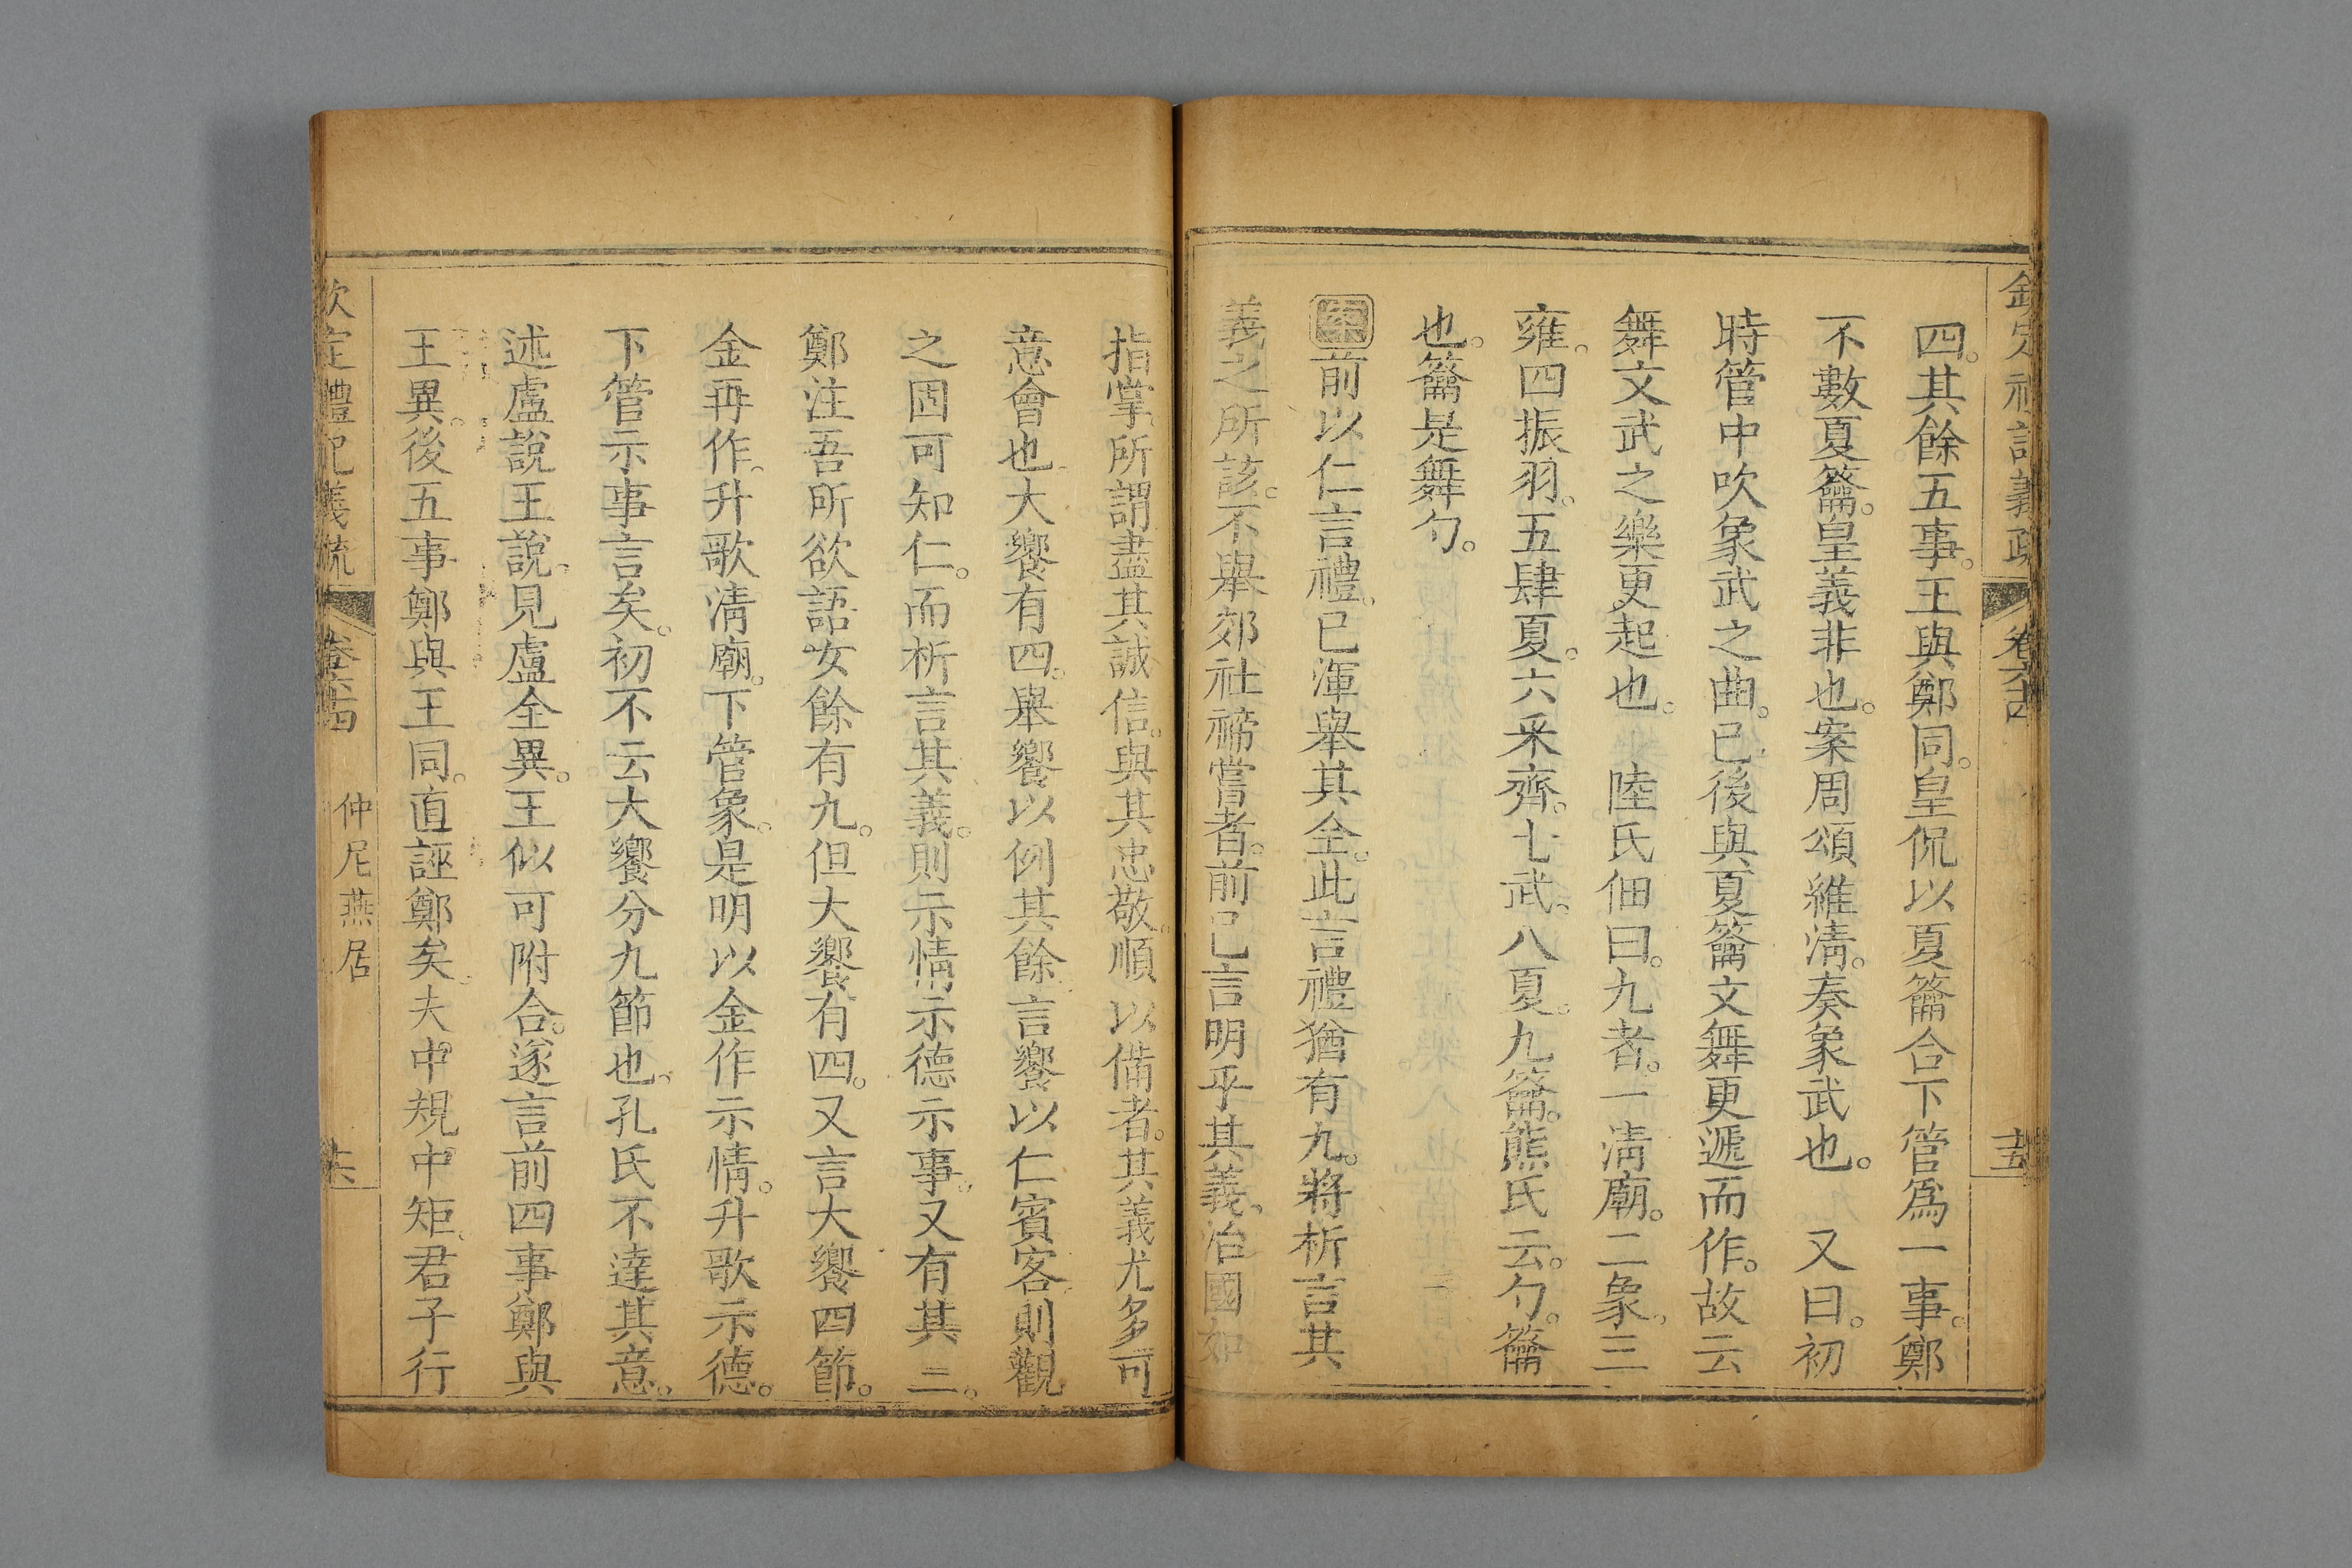 欽定禮記義疏 卷六十四 十五
四。其餘五事。王與鄭同。皇侃以夏籥合下管爲一事。鄭
不數夏籥。皇義非也。案周頌維淸。奏象武也。 又曰。初
時管中吹象武之曲。已後與夏籥文舞更遞而作。故云
舞文武之樂更起也。 陸氏佃曰。九者。一淸廟。二象。三
雍。四振羽。五肆夏。六采齊。七武。八夏。九籥。熊氏云。勺。籥
也。籥是舞勺。
案前以仁言禮。已渾舉其全。此言禮猶有九。將析言其
義之所該。不舉郊社禘嘗者。前已言明乎其義。治國如
指掌。所謂盡其誠信。與其忠敬。順以備者。其義尤多可
意會也。大饗有四。舉饗以例其餘。言饗以仁賓客。則觀
之固可知仁。而析言其義。則示情示德示事。又有其二。
鄭注吾所欲語女餘有九。但大饗有四。又言大饗四節。
金再作。升歌淸廟。下管象。是明以金作示情。升歌示德。
下管示事言矣。初不云大饗分九節也。孔氏不達其意。
述盧說王說。見盧全異。王似可附合。遂言前四事鄭與
王異。後五事鄭與王同。直誣鄭矣。夫中規中矩。君子行
欽定禮記義疏 卷六十四 仲尼燕居 十六